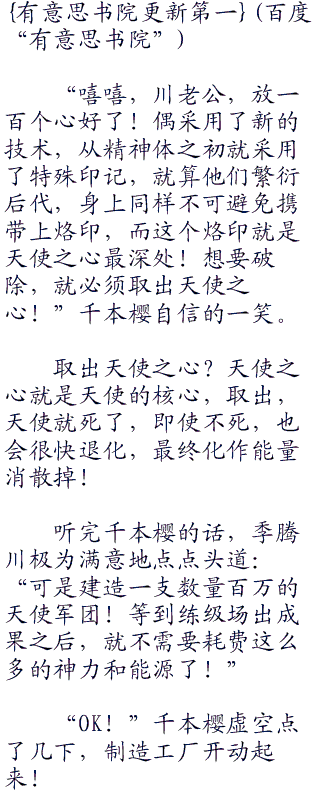 {有意思书院更新第一}(百度
“有意思书院”)
“嘻嘻，川老公，放一
百个心好了！偶采用了新的
技术，从精神体之初就采用
了特殊印记，就算他们繁衍
后代，身上同样不可避免携
带上烙印，而这个烙印就是
天使之心最深处！想要破
除，就必须取出天使之
心！”千本樱自信的一笑。
取出天使之心？天使之
心就是天使的核心，取出，
天使就死了，即使不死，也
会很快退化，最终化作能量
消散掉！
听完千本樱的话，季腾
川极为满意地点点头道：
“可是建造一支数量百万的
天使军团！等到练级场出成
果之后，就不需要耗费这么
多的神力和能源了！”
“OK！”千本樱虚空点
了几下，制造工厂开动起
来！